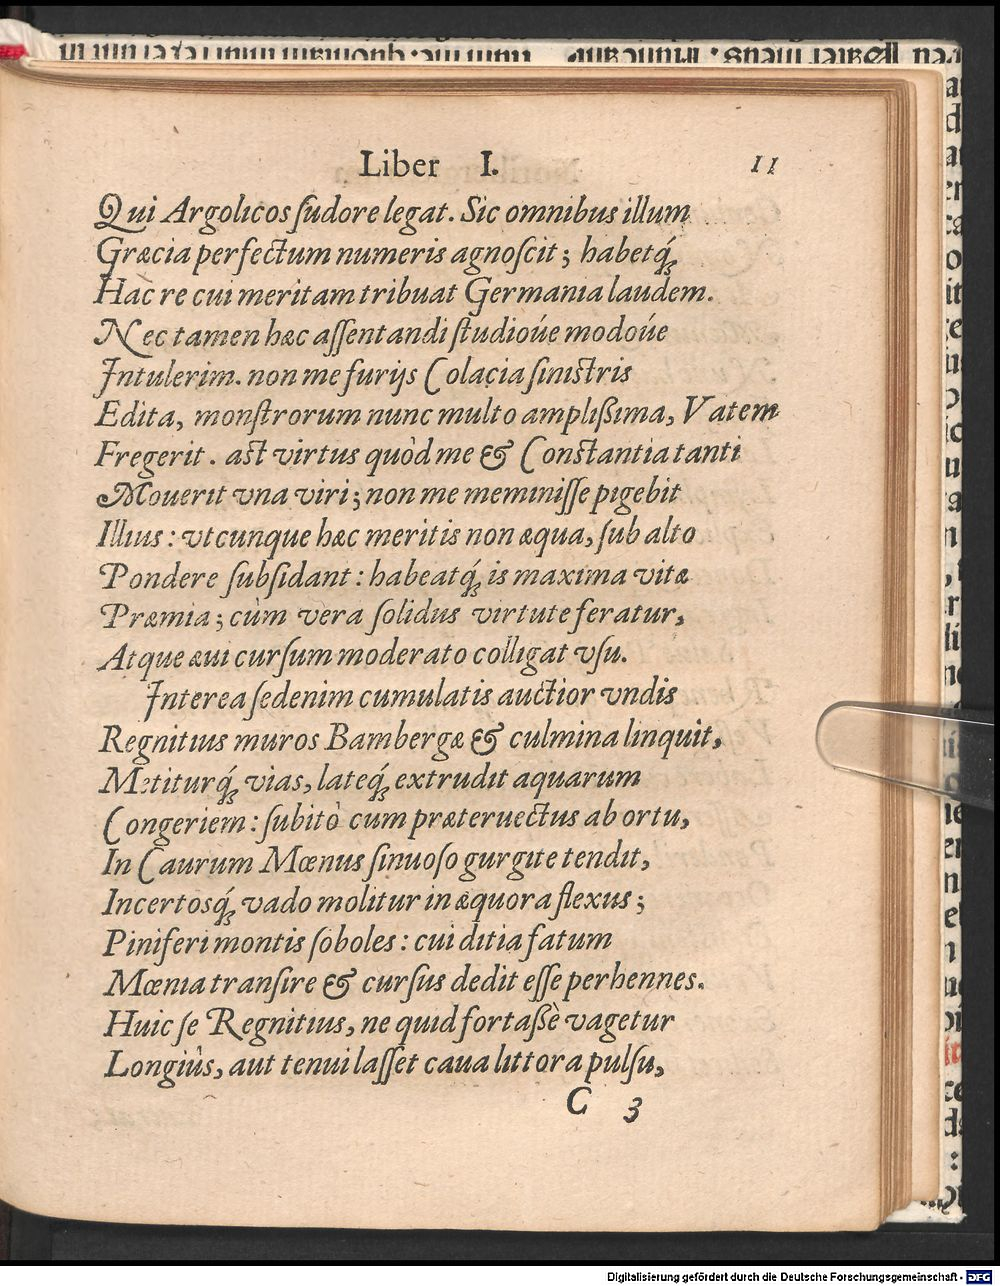 Liber I. 11
Qui Argolicos ſudore legat. Sic omnibus illum
Græcia perfectum numeris agnoſcit; habetq́ꝫ
Hac re cui meritam tribuat Germania laudem.
Nec tamen hæc aſſentandi ſtudioúe modoúe
Intulerim. non me furijs Colacia ſiniſtris
Edita, monſtrorum nunc multo ampliſsima, Vatem
Fregerit. aſt virtus quòd me & Conſtantia tanti
Mouerit vna viri; non me meminiſſe pigebit
Illius: vtcunque hæc meritis non æqua, ſub alto
Pondere ſubſidant: habeatq́ꝫ is maxima vitæ
Præmia; cùm vera ſolidus virtute feratur,
Atque æui curſum moderato colligat vſu.
Interea ſedenim cumulatis auctior vndis
Regnitius muros Bambergæ & culmina linquit,
Metiturq́ꝫ vias, lateq́ꝫ extrudit aquarum
Congeriem: ſubitò cum præteruectus ab ortu,
In Caurum Mœnus ſinuoſo gurgite tendit,
Incertosq́ꝫ vado molitur in æquora flexus;
Piniferi montis ſoboles: cui ditia fatum
Mœnia tranſire & curſus dedit eſſe perhennes.
Huic ſe Regnitius, ne quid fortaſsè vagetur
Longiûs, aut tenui laſſet caua littora pulſu,
C 3
Digitalisierung gefördert durch die Deutsche Forschungsgemeinschaft - DFG